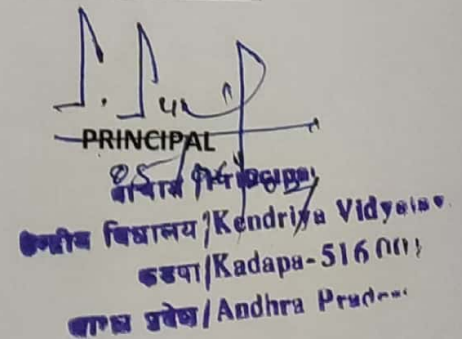 PRINCIPAL
प्राचार्य/Principal
केन्द्रीय विद्यालय/Kendriya Vidyalaya
कडपा/Kadapa-516 001
आन्ध्र प्रदेश/Andhra Pradesh